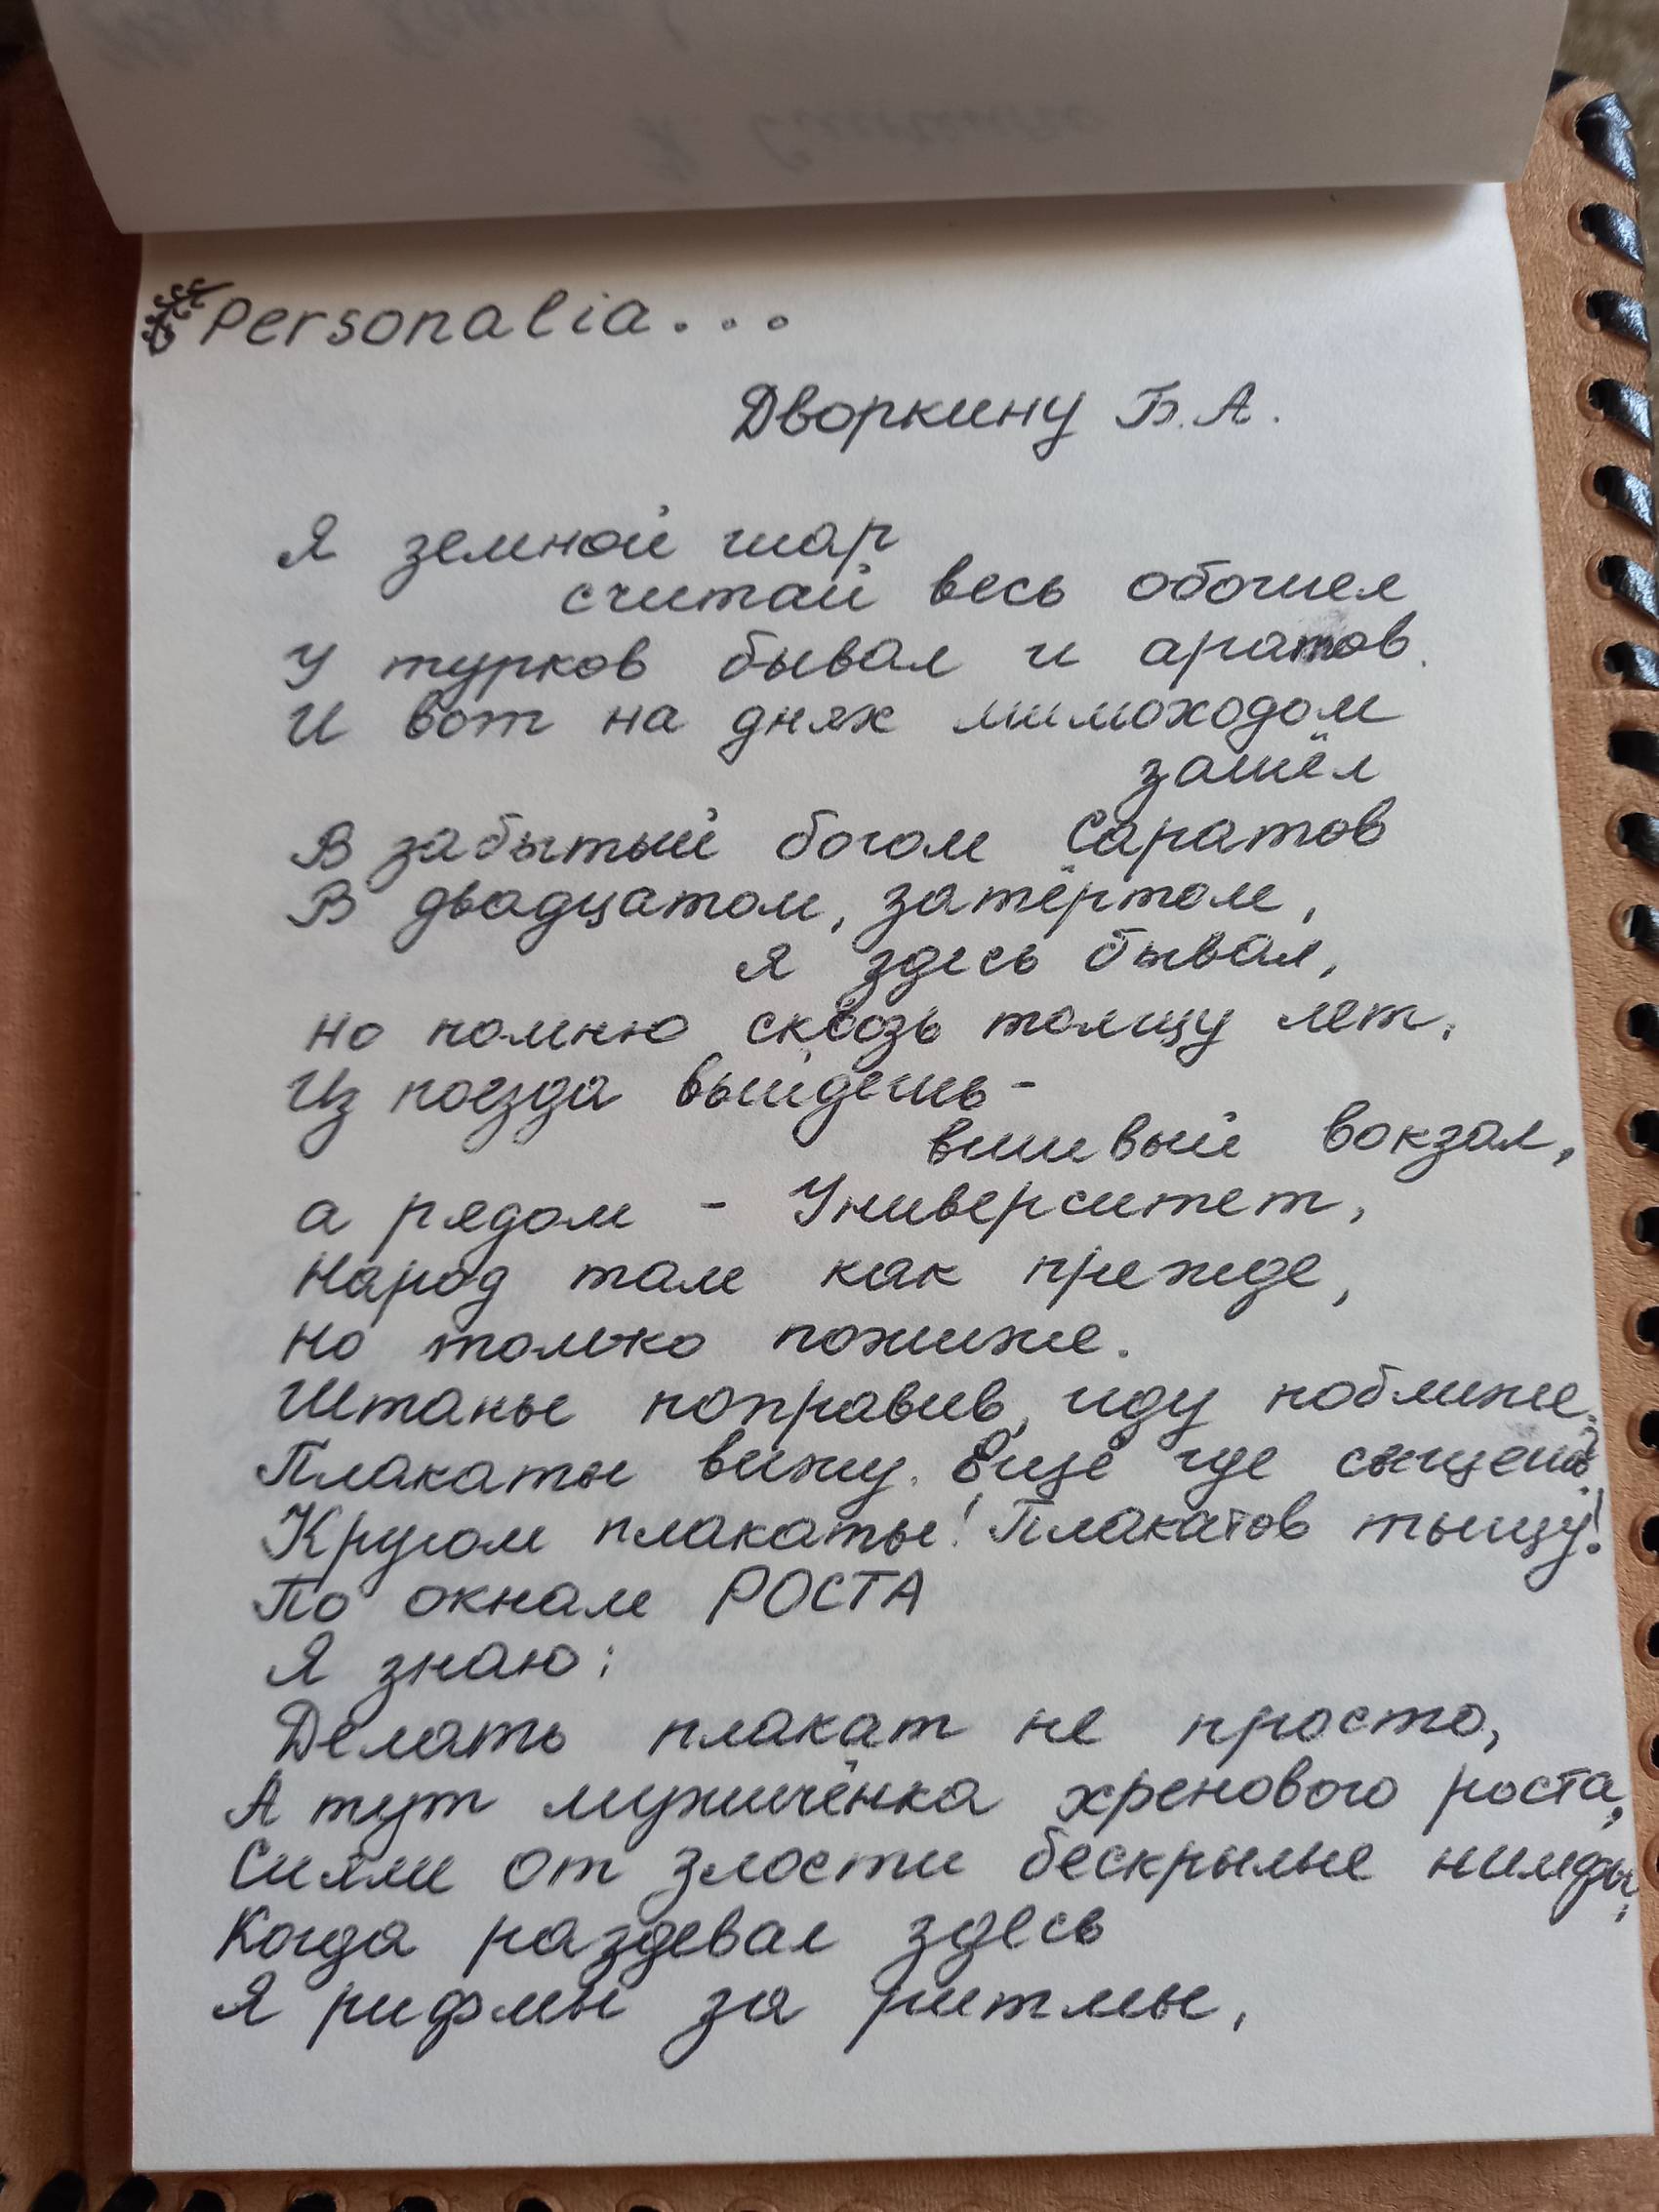 Personalia...
Дворкину Б.А.
Я земной шар
считай весь обошел
У турков бывал и аратов.
И вот на днях мимоходом
зашёл
В забытый богом Саратов
В двадцатом, затёртом,
я здесь бывал,
но помню сквозь толщу лет,
Из поезда выйдешь -
вшивый вокзал,
а рядом - Университет,
Народ там как прежде,
но только пожиже.
Штаны поправив, иду поближе.
Плакаты вижу. Ещё где сыщешь?
Кругом плакаты! Плакатов тыщу!
По окнам РОСТА
Я знаю:
Делать плакат не просто,
А тут мужичёнка хренового роста,
Сияли от злости бескрылые нимфы,
Когда раздевал здесь
Я рифмы за ритмы,